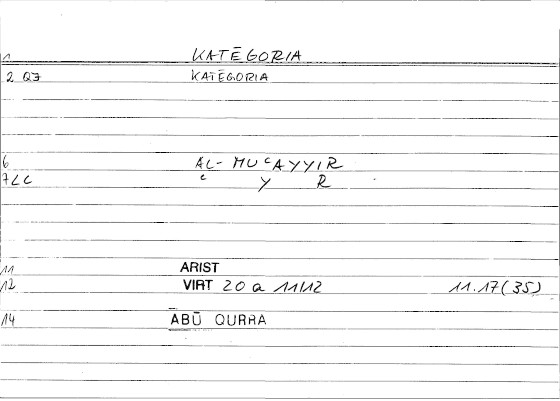 1 KATĒGORIA
2 QJ KATĒGORIA
6 AL- MUʿAYYIR
7 LC ʿ Y R
11 ARIST
12 VIRT 20 a 11/12 11.17(35)
14 ABŪ QURRA